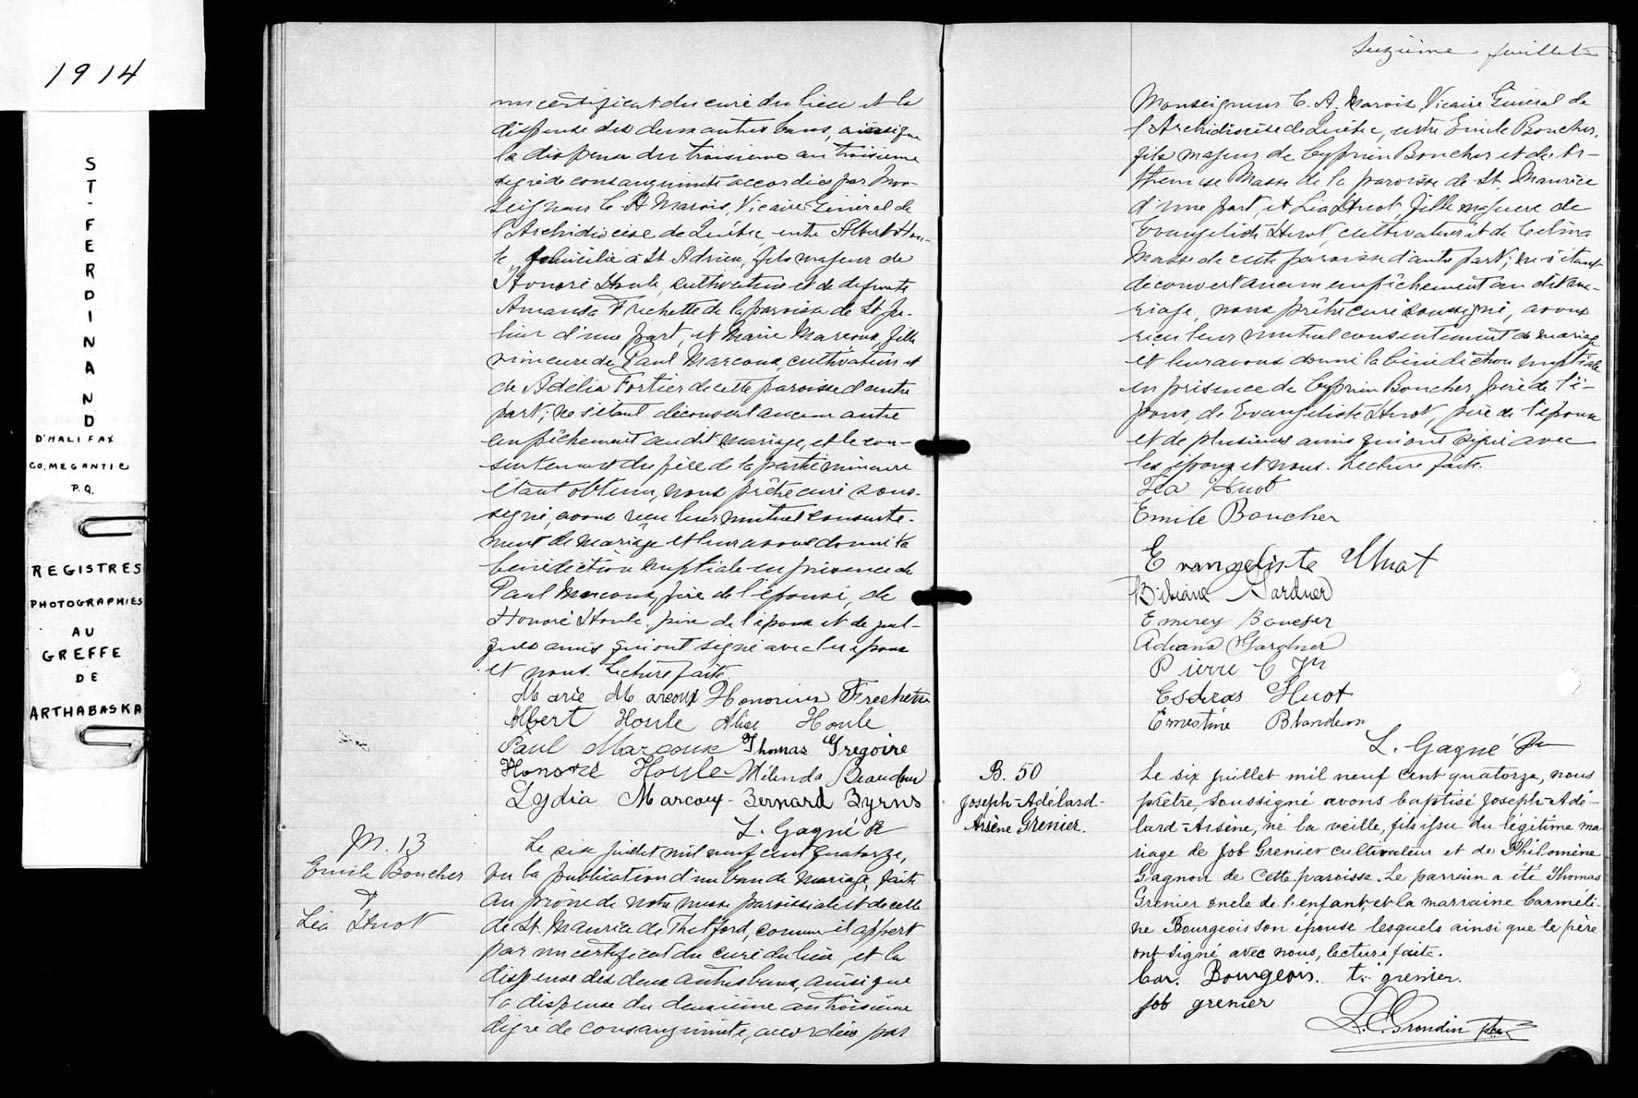 1914
ST-FERDINAND
D'HALIFAX
CO. MEGANTIC
P.Q.
REGISTRES
PHOTOGRAPHIES
AU
GREFFE
DE
ARTHABASKA
un certificat du curé du lieu et la
dispense des deux autres bans, ainsi que
la dispense du troisième au troisième
degré de consanguinité accordées par Mon-
seigneur C. A. Marois, Vicaire Général de
l'Archidiocèse de Québec, entre Albert Hou-
le, domicilié à St Adrien, fils majeur de
Honoré Houle, cultivateur et de defunte
Amanda Frechette de la paroisse de St Ju-
lien d'une part, et Marie Marcoux, fille
mineure de Paul Marcoux, cultivateur et
de Adélia Fortier de cette paroisse d'autre
part; ne s'étant découvert aucun autre
empêchement au dit mariage, et le con-
sentement du père de la partie mineure
étant obtenu, nous prêtre curé sous-
signé, avons reçu leur mutuel consente-
ment de mariage et leur avons donné la
bénédiction nuptiale en présence de
Paul Marcoux, père de l'épouse, de
Honoré Houle, père de l'époux et de quel-
ques amis qui ont signé avec les époux
et nous. Lecture faite.
Marie Marcoux Honorius Frechette
Albert Houle Alice Houle
Paul Marcoux Thomas Gregoire
Honoré Houle Milenda Beaudoin
Lydia Marcoux - Bernard Byrns
L. Gagné Ptr
M. 13
Emile Boucher
&
Léa Huot
Le six juillet mil neuf cent quatorze,
vu la publication d'un ban de mariage, faite
au prône de notre messe paroissiale et de celle
de St. Maurice de Thetford, comme il appert
par un certificat du curé du lieu, et la
dispense des deux autres bans, ainsi que
la dispense du deuxième au troisième
degré de consanguinité, accordées par
feuillet
Monseigneur C. A. Marois, Vicaire Général de
l'Archidiocèse de Québec, entre Emile Boucher,
fils majeur de Cyprien Boucher et de Ar-
themise Masse de la paroisse de St. Maurice
d'une part, et Léa Huot, fille majeure de
Evangeliste Huot, cultivateur et de Celina
Masse de cette paroisse d'autre part; ne s'étant
découvert aucun empêchement au dit ma-
riage, nous prêtre curé soussigné, avons
reçu leur mutuel consentement de mariage
et leur avons donné la bénédiction nuptiale
en présence de Cyprien Boucher, père de l'é-
poux, de Evangeliste Huot, père de l'épouse
et de plusieurs amis qui ont signé avec
les époux et nous. Lecture faite.
Léa Huot
Emile Boucher
Evangeliste Huot
Bibiane Gardner
Emerey Boucher
Adriana Gardner
Pierre C
Esdras Huot
Ernestine Blondeau
L. Gagné Ptr
B. 50
Joseph-Adélard-
Arsène Grenier.
Le six juillet mil neuf cent quatorze, nous
prêtre, soussigné avons baptisé Joseph-Adé-
lard-Arsène, né la veille, fils issu du légitime ma
riage de Job Grenier cultivateur et de Philomène
Gagnon de cette paroisse. Le parrain a été Thomas
Grenier oncle de l'enfant, et la marraine Carméli-
ne Bourgeois son épouse lesquels ainsi que le père
ont signé avec nous, lecture faite.
Car. Bourgeois. t. grenier.
Job grenier
Grondin ptre